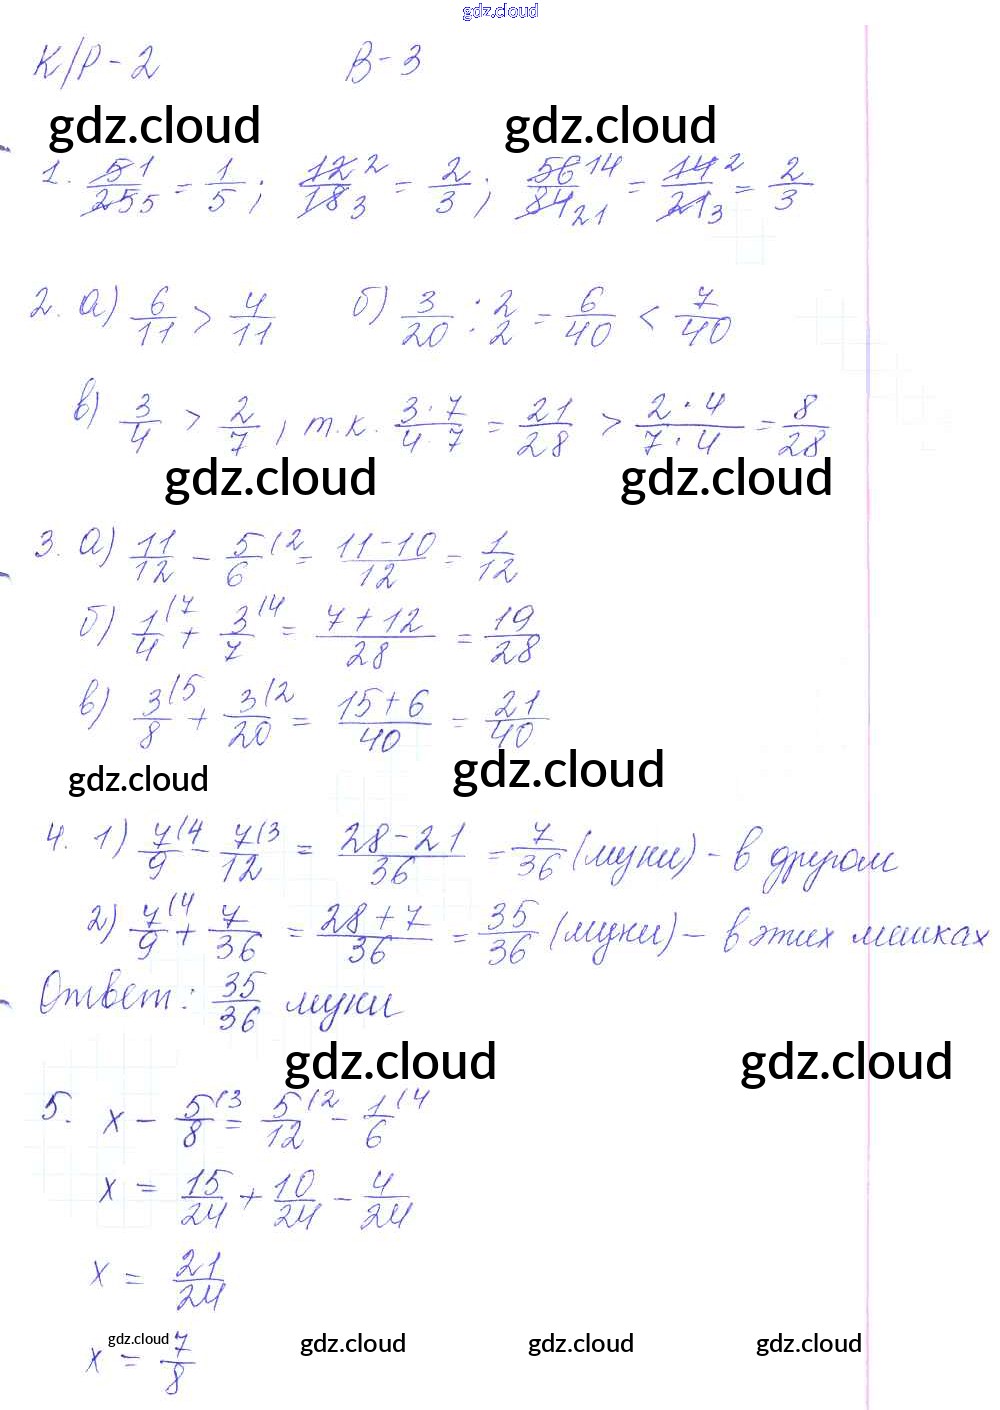 gdz.cloud
К/Р - 2 В - 3
gdz.cloud gdz.cloud
1. 5/25 1/5 = 1/5; 12/18 2/3 = 2/3; 56/84 14/21 = 14/21 2/3 = 2/3
2. а) 6/11 > 4/11 б) 3/20 : 2/2 = 6/40 < 7/40
в) 3/4 > 2/7, т.к. 3·7/4·7 = 21/28 > 2·4/7·4 = 8/28
gdz.cloud gdz.cloud
3. а) 11/12 - 5/6 (2 = 11-10/12 = 1/12
б) 1/4 (7 + 3/7 (4 = 7+12/28 = 19/28
в) 3/8 (5 + 3/20 (2 = 15+6/40 = 21/40
gdz.cloud gdz.cloud
4. 1) 7/9 (4 - 7/12 (3 = 28-21/36 = 7/36 (муки) - в другом
2) 7/9 (4 + 7/36 = 28+7/36 = 35/36 (муки) - в этих мешках
Ответ: 35/36 муки
gdz.cloud gdz.cloud
5. x - 5/8 (3 = 5/12 (2 - 1/6 (4
x = 15/24 + 10/24 - 4/24
x = 21/24
gdz.cloud gdz.cloud gdz.cloud gdz.cloud
x = 7/8